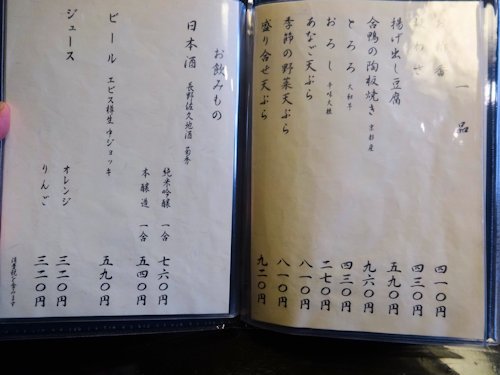 一品
お新香 四一〇円
板わさ 四三〇円
揚げ出し豆腐 五九〇円
合鴨の陶板焼き 京都産 九六〇円
とろろ 大和芋 四三〇円
おろし 辛味大根 二七〇円
あなご天ぷら 八一〇円
季節の野菜天ぷら 八一〇円
盛り合せ天ぷら 九二〇円
お飲みもの
日本酒 長野佐久地酒 菊秀
純米吟醸 一合 七六〇円
本醸造 一合 五四〇円
ビール エビス樽生 中ジョッキ 五九〇円
ジュース
オレンジ 三二〇円
りんご 三二〇円